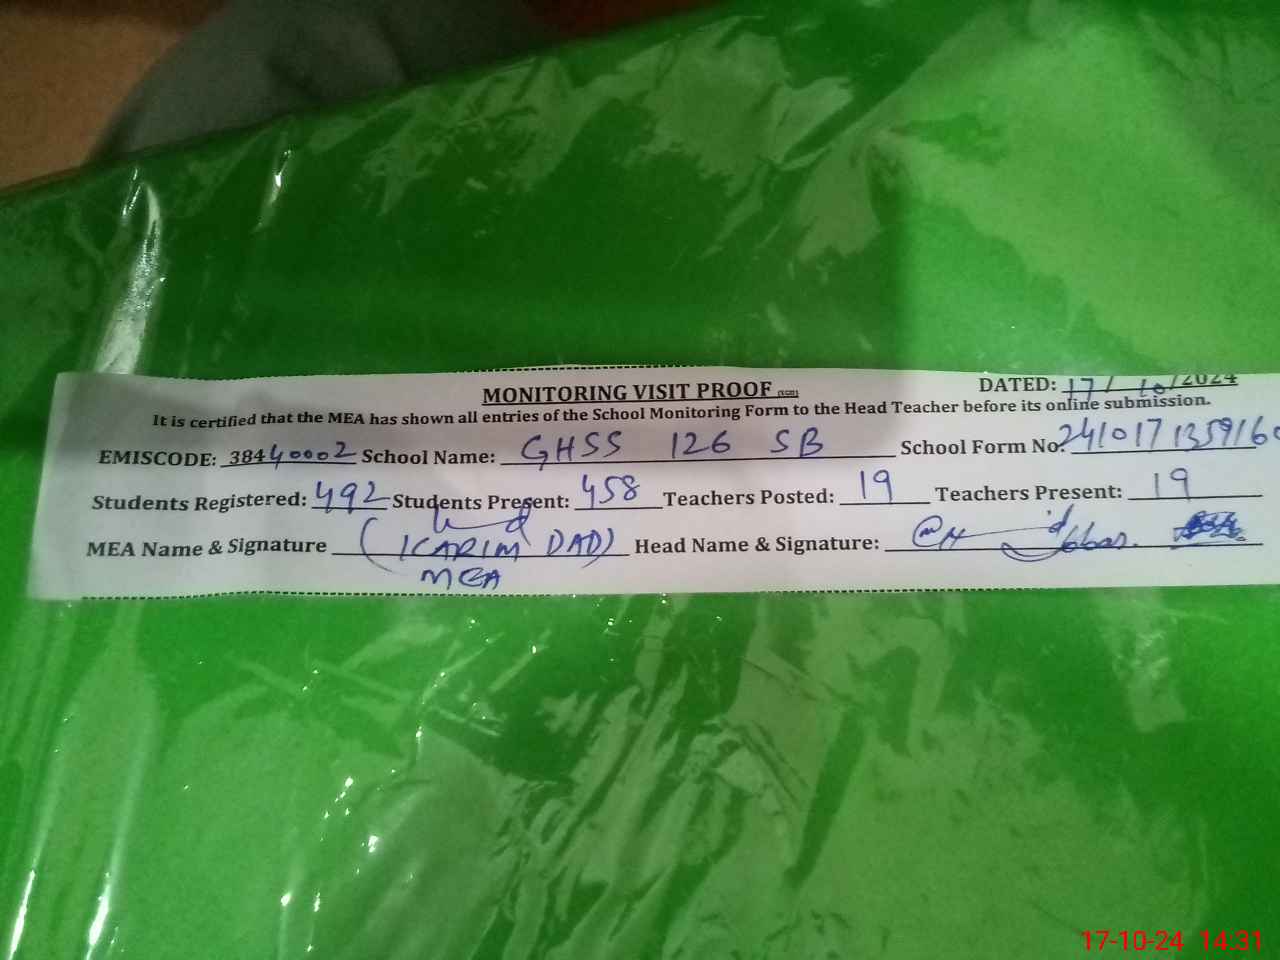 MONITORING VISIT PROOF
DATED: 17/10/2024
It is certified that the MEA has shown all entries of the School Monitoring Form to the Head Teacher before its online submission.
EMISCODE: 38440002 School Name: GHSS 126 SB School Form No: 241017135916
Students Registered: 492 Students Present: 458 Teachers Posted: 19 Teachers Present: 19
MEA Name & Signature (KARIM DAD) Head Name & Signature:
MEA
17-10-24 14:31